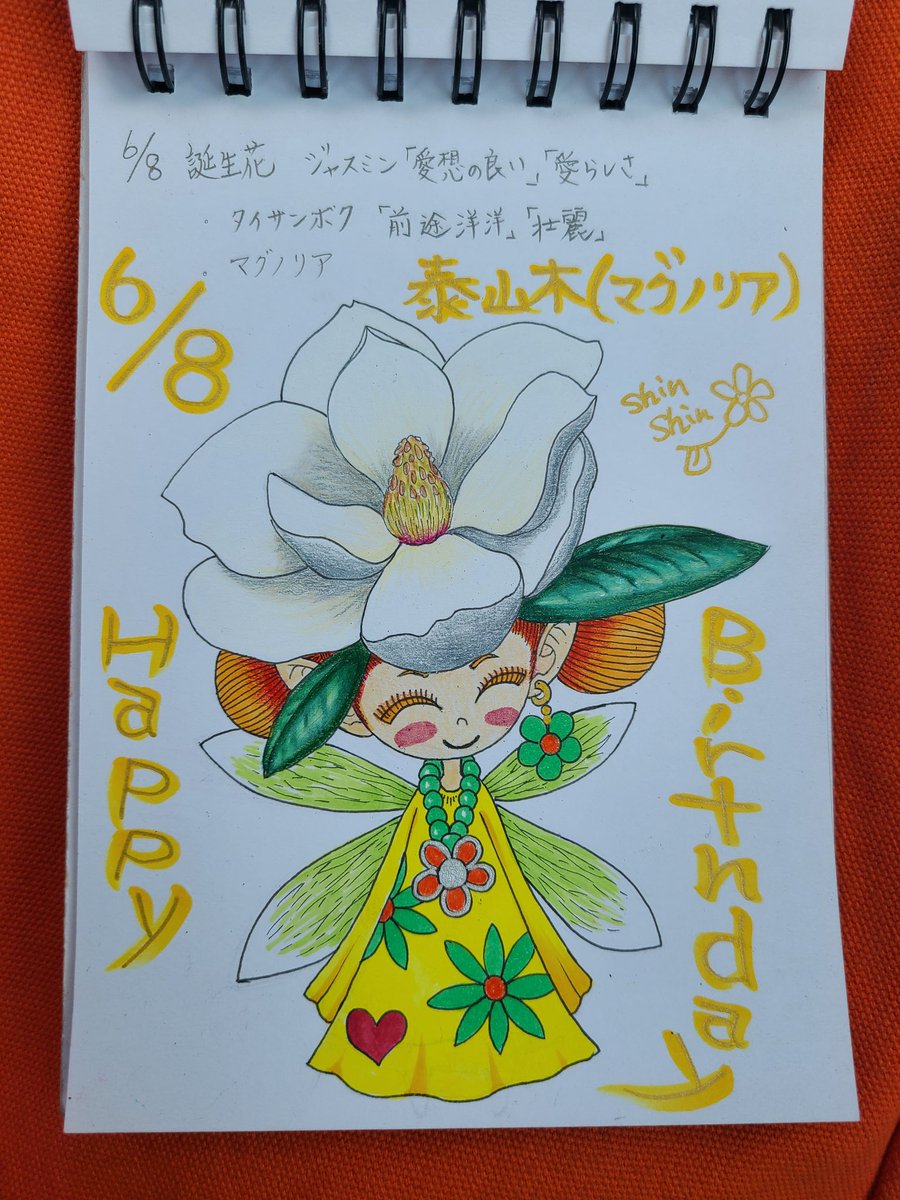 6/8 誕生花 ジャスミン「愛想の良い」「愛らしさ」
・タイサンボク「前途洋洋」「壮麗」
・マグノリア
6/8
泰山木(マグノリア)
shin
shin
Happy
Birthday